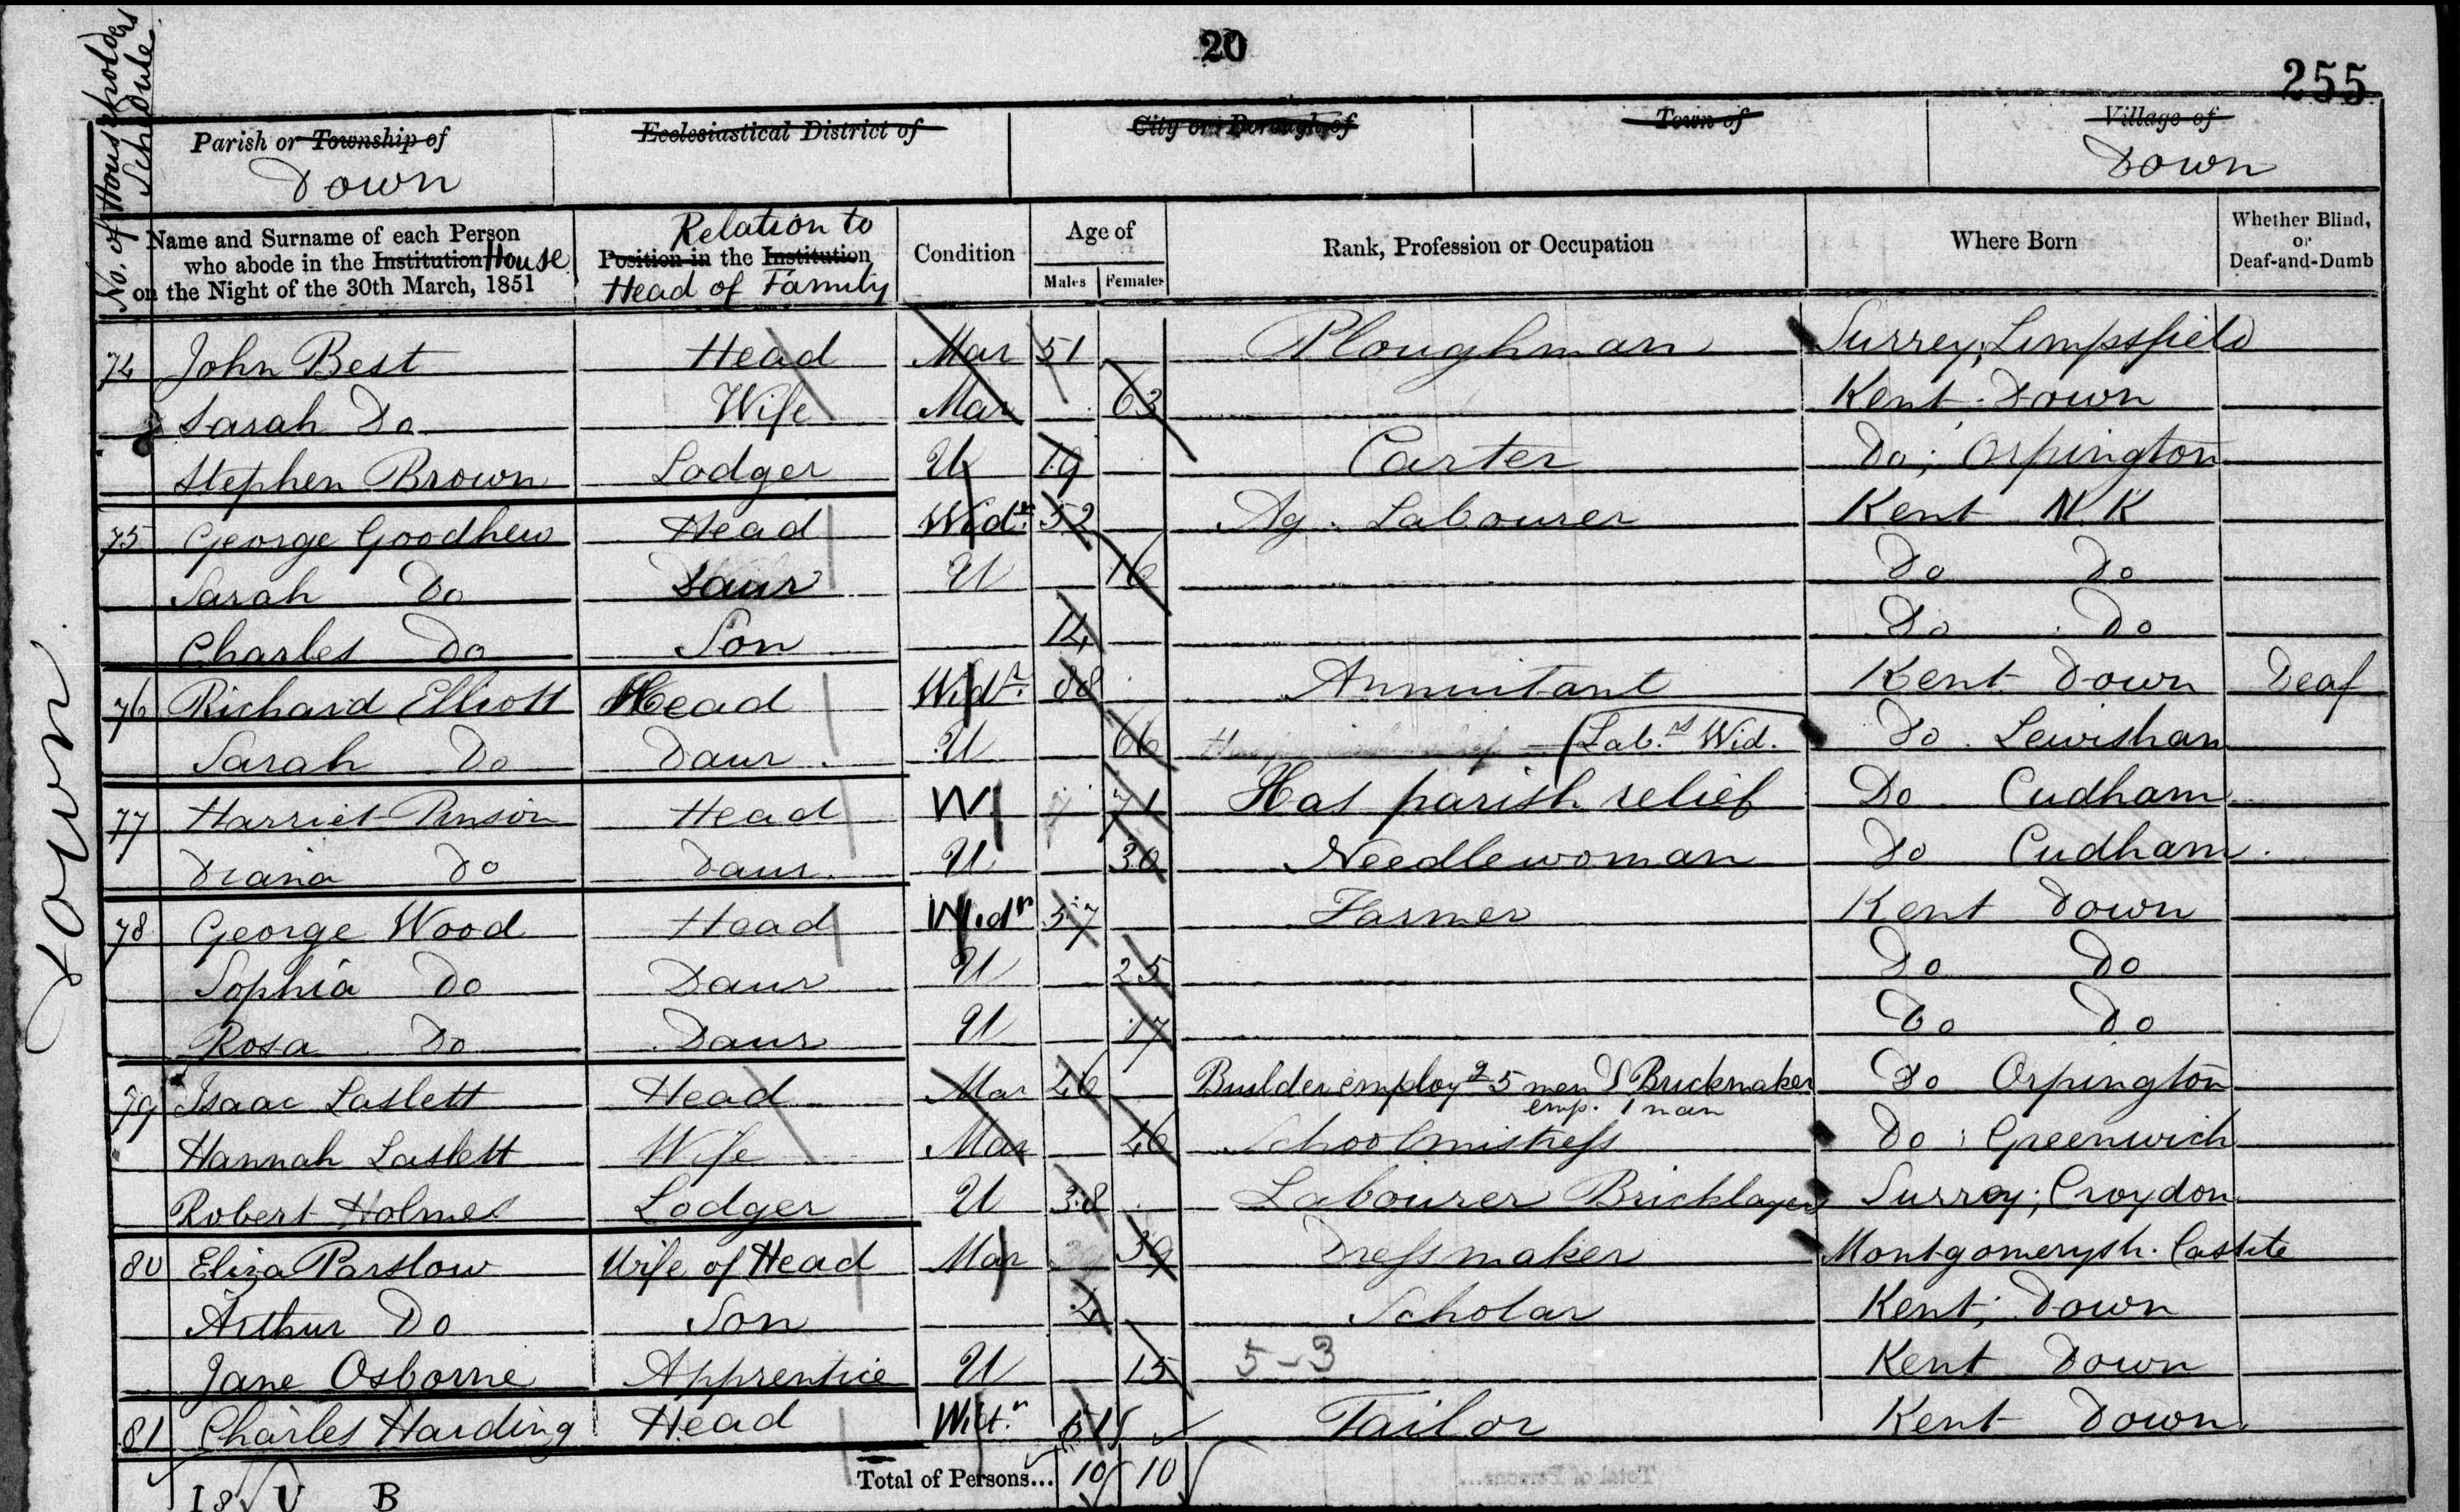 20
255
No. of Householders Schedule
Parish or Township of
Down
Ecclesiastical District of
City or Borough of
Town of
Village of
Down
Name and Surname of each Person who abode in the Institution House on the Night of the 30th March, 1851
Relation to
Position in the Institution
Head of Family
Condition
Age of
Males Females
Rank, Profession or Occupation
Where Born
Whether Blind, or Deaf-and-Dumb
Down
74 John Best Head Mar 51 Ploughman Surrey; Limpsfield
Sarah Do Wife Mar 63 Kent Down
Stephen Brown Lodger U 19 Carter Do; Orpington
75 George Goodhew Head Widr. 52 Ag. Labourer Kent N.K
Sarah Do Daur U 16 Do Do
Charles Do Son 14 Do Do
76 Richard Elliott Head Widr. 88 Annuitant Kent Down Deaf
Sarah Do Daur U 66 (Lab.s Wid. Do Lewisham
77 Harriet Head W 71 Has parish relief Do Cudham
Diana Do Daur. U 30 Needlewoman Do Cudham.
78 George Wood Head Widr 57 Farmer Kent Down
Sophia Do Daur U 25 Do Do
Rosa Do Daur U 17 Do Do
79 Isaac Laslett Head Mar 46 Builder employg 5 men & Brickmaker emp. 1 man Do Orpington
Hannah Laslett Wife Mar 46 Schoolmistress Do; Greenwich
Robert Holmes Lodger U 38 Labourer Bricklayers Surrey; Croydon
80 Eliza Parslow Wife of Head Mar 39 Dressmaker Montgomerysh.
Arthur Do Son 4 Scholar Kent; Down
Jane Osborne Apprentice U 15 5-3 Kent Down
81 Charles Harding Head Widr. 51 Tailor Kent Down
Total of Persons... 10 10
B